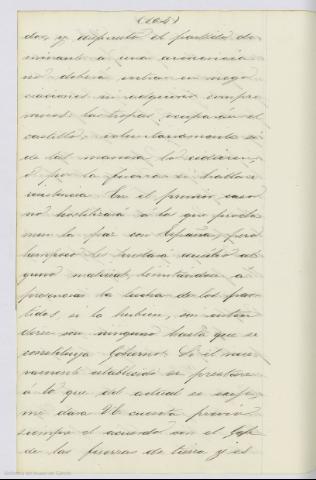 (164)
dor, y dispuesto el partido do-
minante á una avenencia
no deberá entrar en nego-
ciaciones ni adquirir compro
misos. Las tropas ocuparán el
castillo, voluntariamente si
de tal manera lo cedieren,
ó por la fuerza si hubiere
resistencia. En el primer caso
no hostilizará á los que procla
men la paz con España, pero
tampoco les prestará auxilio al
guno material, limitandose á
presenciar la lucha de los par
tidos si la hubiere, sin enten
derse con ninguno hasta que se
constituya Gobierno. Si el nue-
vamente establecido se prestare
á lo que del actual se exije,
me dará V. cuenta previo
siempre el acuerdo con el Jefe
de las fuerzas de tierra y el